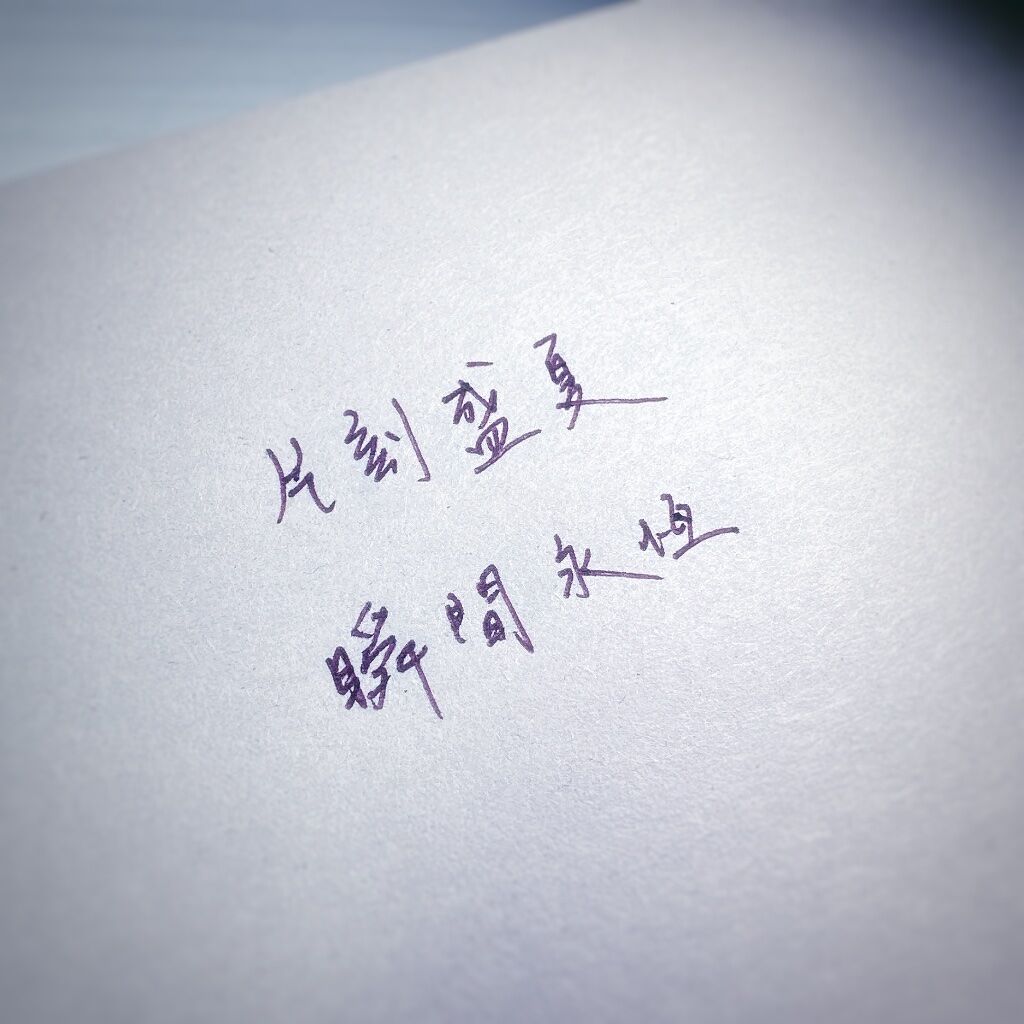 片刻盛夏
瞬間永恆